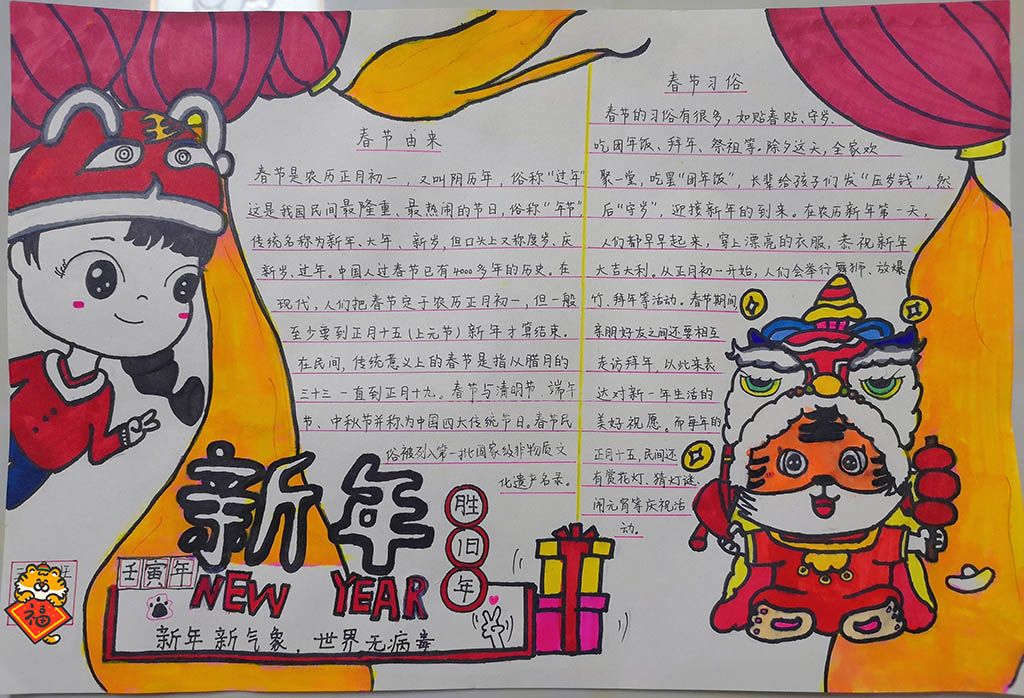 春节由来
春节是农历正月初一，又叫阴历年，俗称“过年”
这是我国民间最隆重、最热闹的节日，俗称“年节”
传统名称为新年、大年、新岁，但口头上又称度岁、庆
新岁，过年。中国人过春节已有4000多年的历史。在
现代，人们把春节定于农历正月初一，但一般
至少要到正月十五（上元节）新年才算结束。
在民间，传统意义上的春节是指从腊月的
三十三一直到正月十九。春节与清明节 端午
节、中秋节并称为中国四大传统节日。春节民
俗被列入第一批国家级非物质文
化遗产名录。
春节习俗
春节的习俗有很多，如贴春贴、守岁、
吃团年饭、拜年、祭祖等。除夕这天，全家欢
聚一堂，吃罢“团年饭”，长辈给孩子们发“压岁钱”，然
后“守岁”，迎接新年的到来。在农历新年第一天，
人们都早早起来，穿上漂亮的衣服，恭祝新年
大吉大利。从正月初一开始，人们会举行舞狮、放爆
竹、拜年等活动。春节期间
亲朋好友之间还要相互
走访拜年，以此来表
达对新一年生活的
美好祝愿。而每年的
正月十五，民间还
有赏花灯、猜灯谜、
闹元宵等庆祝活
动。
新年
胜旧年
壬寅年
NEW YEAR
新年新气象，世界无病毒
福